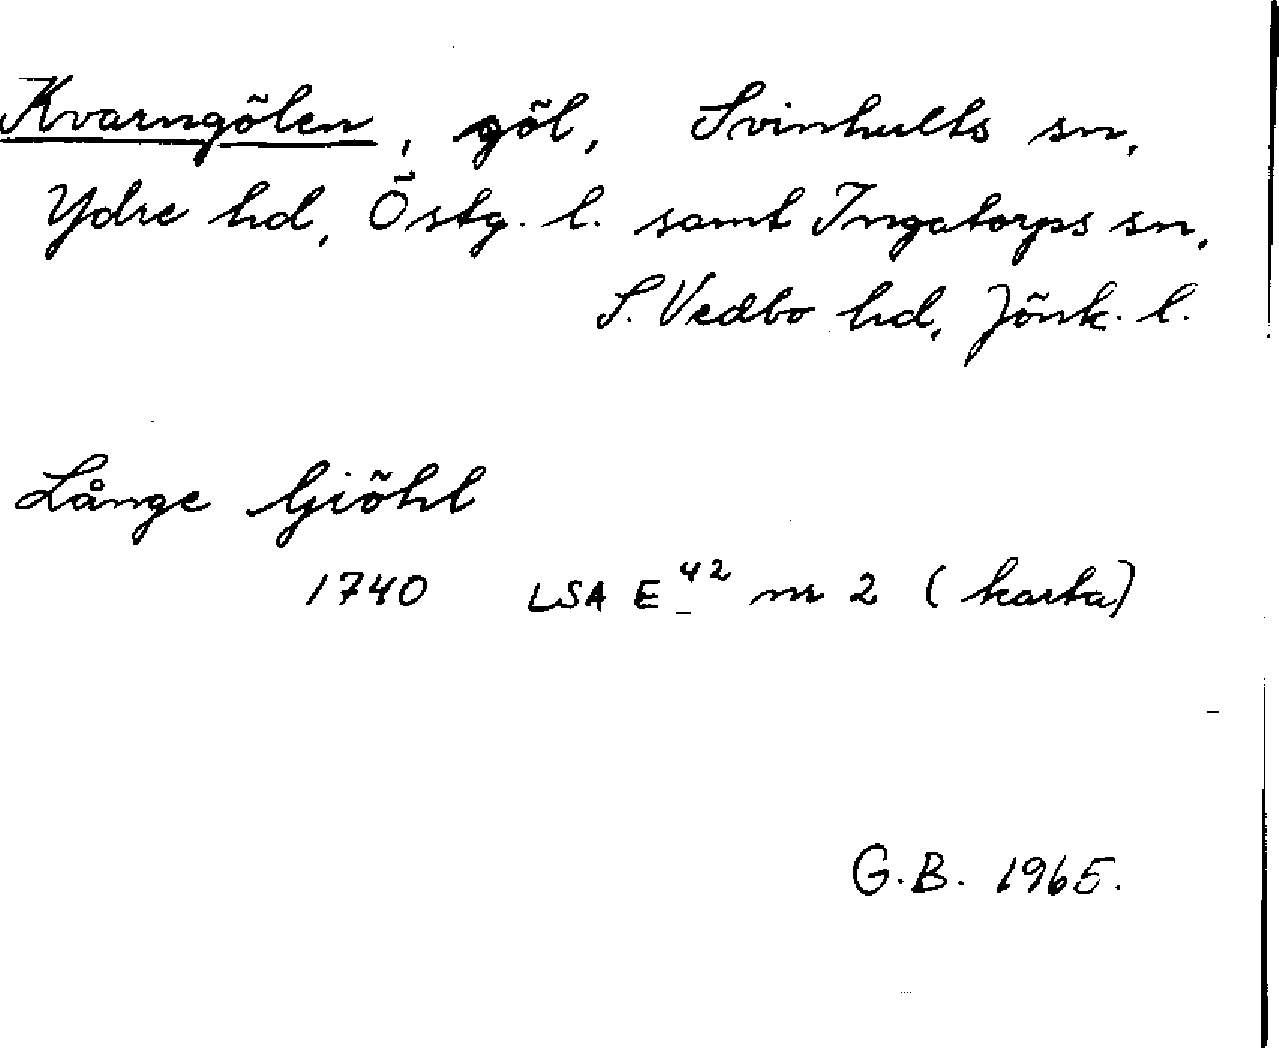 Kvarngölen, göl, Svinhults sn,
Ydre hd, Östg. l. samt Ingatorps sn,
S. Vedbo hd, Jönk. l.
Långe Giöhl
1740 LSA E 42 nr 2 (karta)
G.B. 1965.